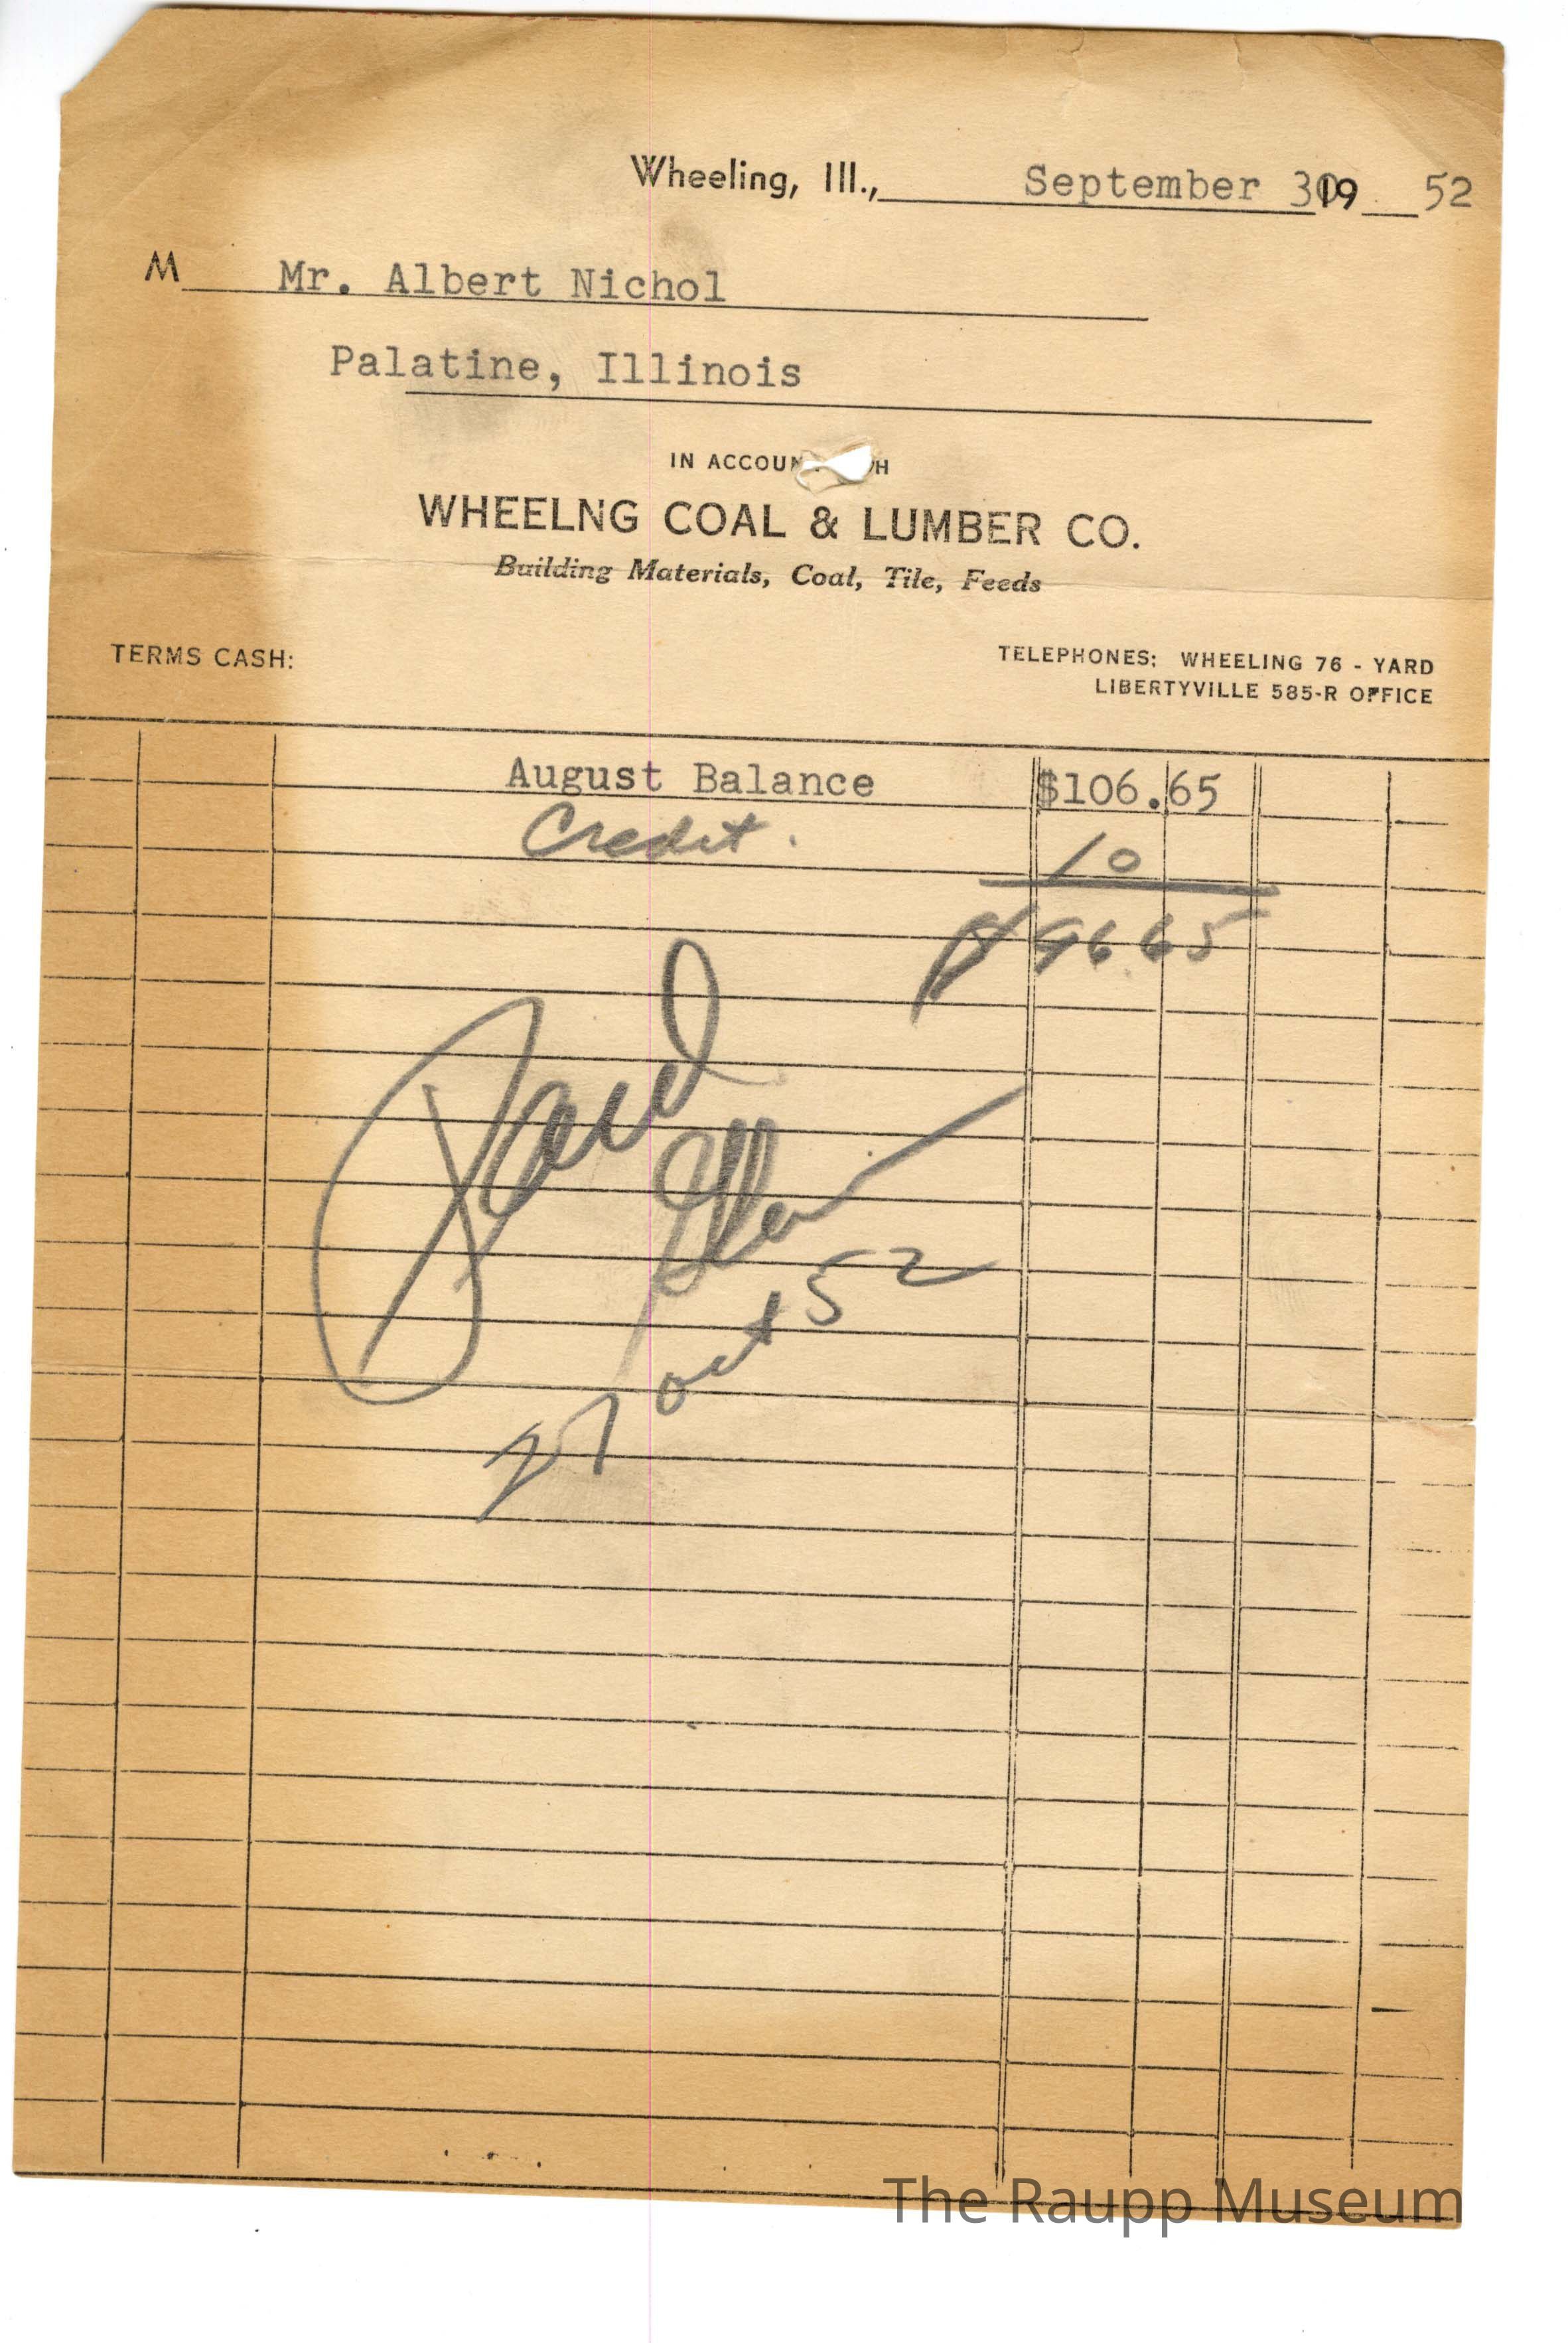 Wheeling, Ill., September 30 19 52
M Mr. Albert Nichol
Palatine, Illinois
IN ACCOUN H
WHEELNG COAL & LUMBER CO.
Building Materials, Coal, Tile, Feeds
TERMS CASH:
TELEPHONES: WHEELING 76 - YARD
LIBERTYVILLE 585-R OFFICE
August Balance $106.65
Credit. 10
$ 96.65
Paid
27 Oct 52
The Raupp Museum